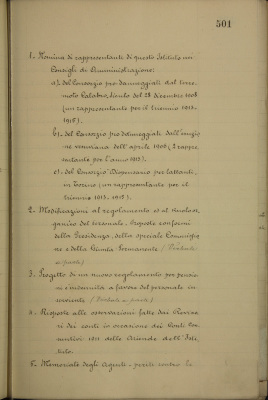 501
1. Nomina di rappresentanti di questo Istituto nei
Consigli di Amministrazione:
a). del Consorzio pro danneggiati dal terre-
moto Calabro, Siculo del 28 dicembre 1908
(un rappresentante per il triennio 1913-
1915).
b). del Consorzio pro danneggiati dall'eruzio
ne vesuviana dell'aprile 1906 (2 rappre-
sentanti per l'anno 1913).
c). del Consorzio Dispensario per lattanti
in Torino (un rappresentante per il
triennio 1913-1915).
2. Modificazioni al regolamento ed al ruolo or-
ganico del personale, proposte conformi
della Presidenza, della speciale Commissio
ne e della Giunta Permanente (Verbale
a parte)
3. Progetto di un nuovo regolamento per pensio
ni e indennità a favore del personale in-
serviente (Verbale a parte)
4. Risposte alle osservazioni fatte dai Reviso
ri dei conti in occasione dei Conti Con-
suntivi 1911 delle Aziende dell'Isti-
tuto.
5. Memoriale degli Agenti